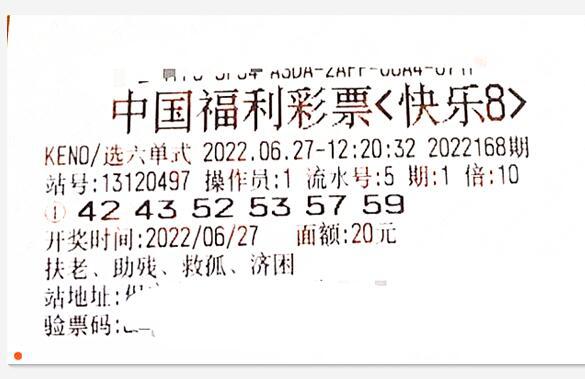 中国福利彩票<快乐8>
KENO/选六单式 2022.06.27-12:20:32 2022168期
站号:13120497 操作员:1 流水号:5 期:1 倍:10
① 42 43 52 53 57 59
开奖时间:2022/06/27 面额:20元
扶老、助残、救孤、济困
站地址:
验票码: